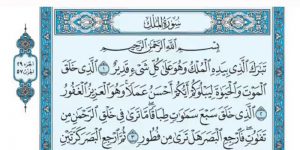 سُورَةُ المُلْكِ
الجزء ٢٩
الحزب ٥٧
بِسْمِ اللَّهِ الرَّحْمَٰنِ الرَّحِيمِ
تَبَٰرَكَ الَّذِي بِيَدِهِ الْمُلْكُ وَهُوَ عَلَىٰ كُلِّ شَيْءٍ قَدِيرٌ ﴿١﴾ الَّذِي خَلَقَ
الْمَوْتَ وَالْحَيَوٰةَ لِيَبْلُوَكُمْ أَيُّكُمْ أَحْسَنُ عَمَلًا وَهُوَ الْعَزِيزُ الْغَفُورُ
﴿٢﴾ الَّذِي خَلَقَ سَبْعَ سَمَٰوَٰتٍ طِبَاقًا مَّا تَرَىٰ فِي خَلْقِ الرَّحْمَٰنِ مِن
تَفَٰوُتٍ فَارْجِعِ الْبَصَرَ هَلْ تَرَىٰ مِن فُطُورٍ ﴿٣﴾ ثُمَّ ارْجِعِ الْبَصَرَ كَرَّتَيْنِ